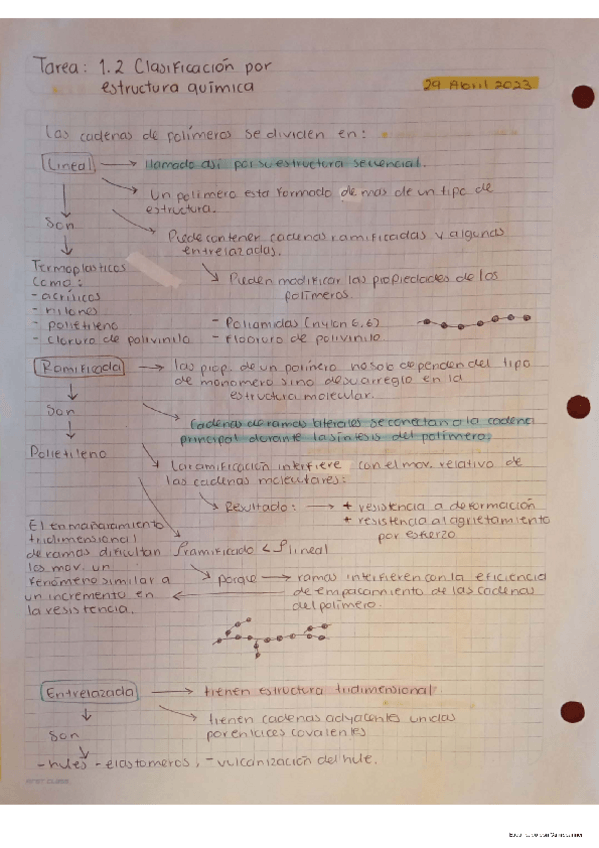 Tarea: 1.2 Clasificación por
estructura química
29 Abril 2023
Las cadenas de polímeros se dividien en:
Lineal → llamado asi por su estructura secuencial.
Un polimero esta formado de mas de un tipo de
estructura.
Son
Puede contener cadenas ramificadas y algunas
entrelazadas.
Termoplasticos
Como:
Pueden modificar las propiedades de los
polímeros.
- acrílicos
- nilones
- polietileno
- Poliamidas (nylon 6,6)
- cloruro de polivinilo
- Flooruro de polivinilo
Ramificada → las prop. de un polímero no solo dependen del tipo
de monomero sino de su arreglo en la
estructura molecular.
Son
Cadenas de ramas laterales se conectan a la cadena
principal durante la sintesis del polimero.
Polietileno
La ramificación interfiere con el mov. relativo de
las cadenas moleculares:
Resultado: → + resistencia a deformación
+ resistencia al agrietamiento
por esferzo
El enmañaramiento
tridimensional
de ramas dificultan
los mov. un
fenómeno similar a
un incremento en
la resistencia.
ρramificado < ρlineal
porque → ramas interfieren con la eficiencia
de empacamiento de las cadenas
del polímero.
Entrelazada → tienen estructura tridimensional
tienen cadenas adyacentes unidas
por enlaces covalentes
Son
- hules - elastomeros, - vulcanización del hule.